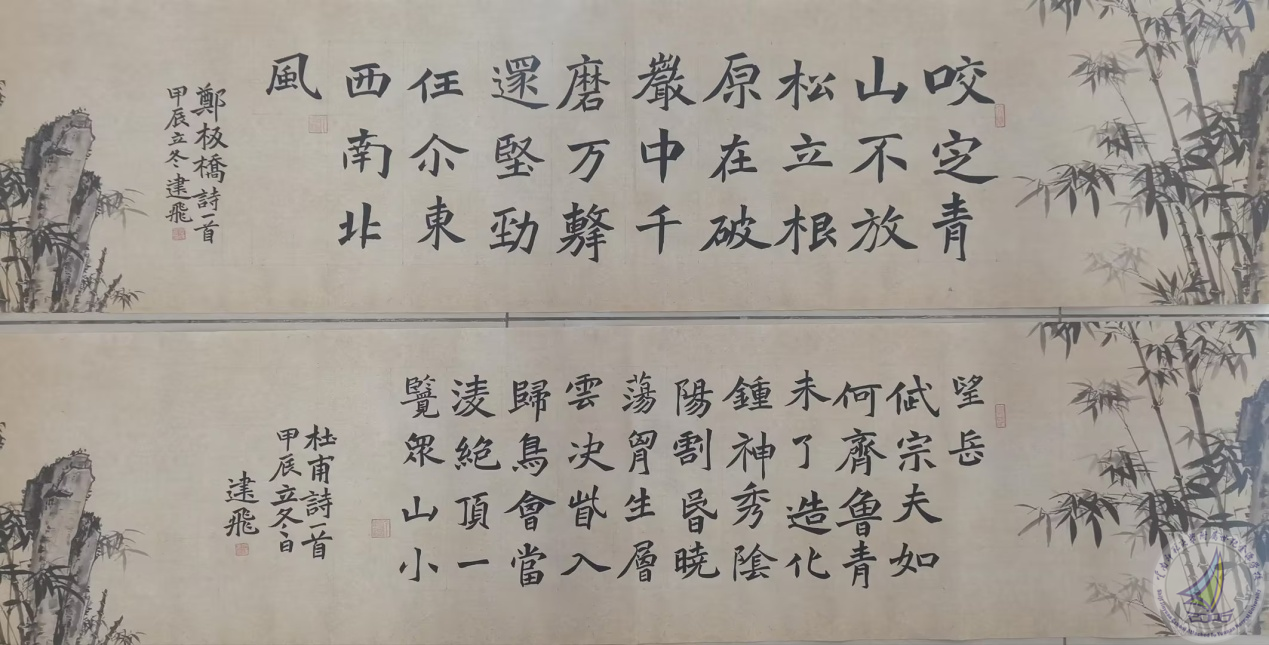 咬定青
山不放
松立根
原在破
巖中千
磨万擊
還堅勁
任尒東
西南北
風
鄭板橋詩一首
甲辰立冬建飛
望岳
岱宗夫如
何齊魯青
未了造化
鍾神秀陰
陽割昬曉
蕩胷生層
雲決眥入
歸鳥會當
淩絕頂一
覽眾山小
杜甫詩一首
甲辰立冬日
建飛